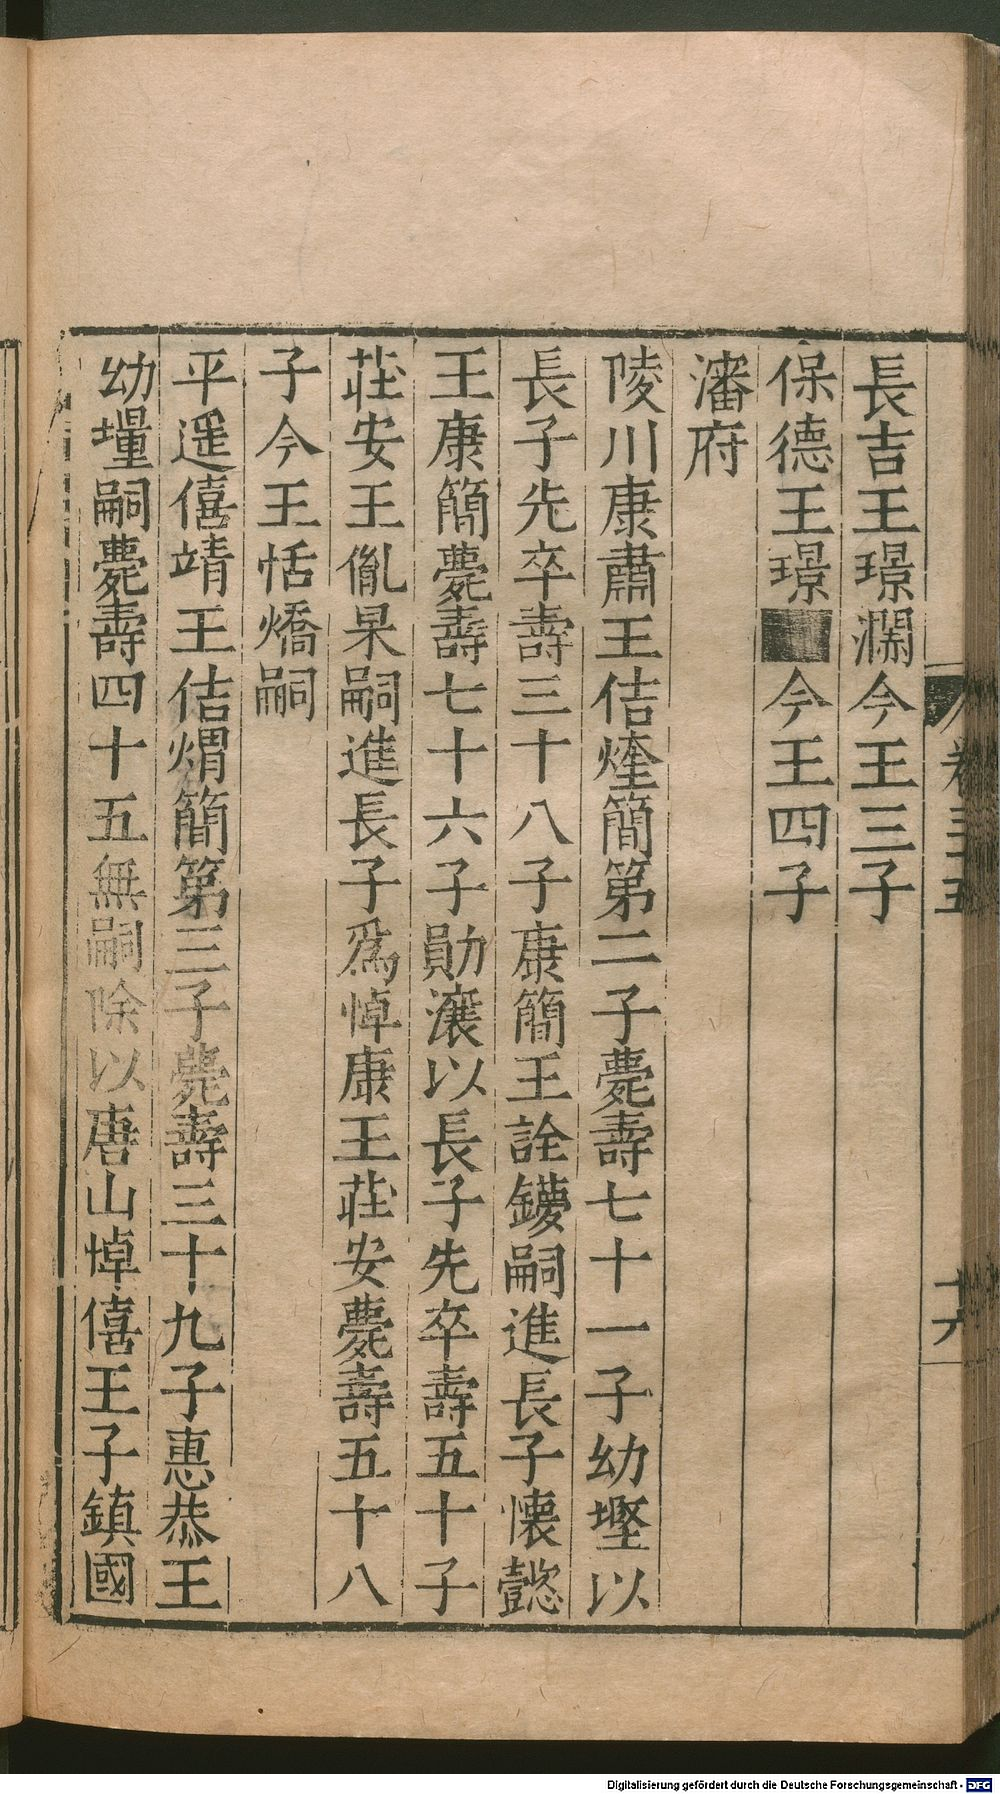 卷三五
十六
長吉王璟瀾今王三子
保德王璟今王四子
瀋府
陵川康肅王佶煃簡第二子薨壽七十一子幼㙷以
長子先卒壽三十八子康簡王詮鑁嗣進長子懷懿
王康簡薨壽七十六子勛瀼以長子先卒壽五十子
莊安王胤杲嗣進長子爲悼康王莊安薨壽五十八
子今王恬燆嗣
平遥僖靖王佶熠簡第三子薨壽三十九子惠恭王
幼㙺嗣薨壽四十五無嗣除以唐山悼僖王子鎮國
Digitalisierung gefördert durch die Deutsche Forschungsgemeinschaft - DFG